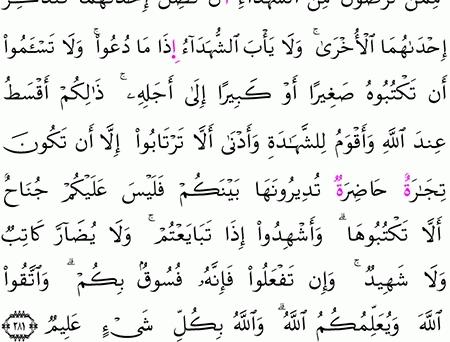 مِمَّن تَرْضَوْنَ مِنَ الشُّهَدَآءِ أَن تَضِلَّ إِحْدَىٰهُمَا فَتُذَكِّرَ
إِحْدَىٰهُمَا الْأُخْرَىٰ ۚ وَلَا يَأْبَ الشُّهَدَآءُ إِذَا مَا دُعُوا۟ ۚ وَلَا تَسْـَٔمُوا۟
أَن تَكْتُبُوهُ صَغِيرًا أَوْ كَبِيرًا إِلَىٰ أَجَلِهِۦ ۚ ذَٰلِكُمْ أَقْسَطُ
عِندَ اللَّهِ وَأَقْوَمُ لِلشَّهَٰدَةِ وَأَدْنَىٰ أَلَّا تَرْتَابُوا۟ إِلَّا أَن تَكُونَ
تِجَٰرَةٌ حَاضِرَةٌ تُدِيرُونَهَا بَيْنَكُمْ فَلَيْسَ عَلَيْكُمْ جُنَاحٌ
أَلَّا تَكْتُبُوهَا ۗ وَأَشْهِدُوا۟ إِذَا تَبَايَعْتُمْ ۚ وَلَا يُضَآرَّ كَاتِبٌ
وَلَا شَهِيدٌ ۚ وَإِن تَفْعَلُوا۟ فَإِنَّهُۥ فُسُوقٌ بِكُمْ ۗ وَاتَّقُوا۟
اللَّهَ وَيُعَلِّمُكُمُ اللَّهُ ۗ وَاللَّهُ بِكُلِّ شَىْءٍ عَلِيمٌ ٢٨١